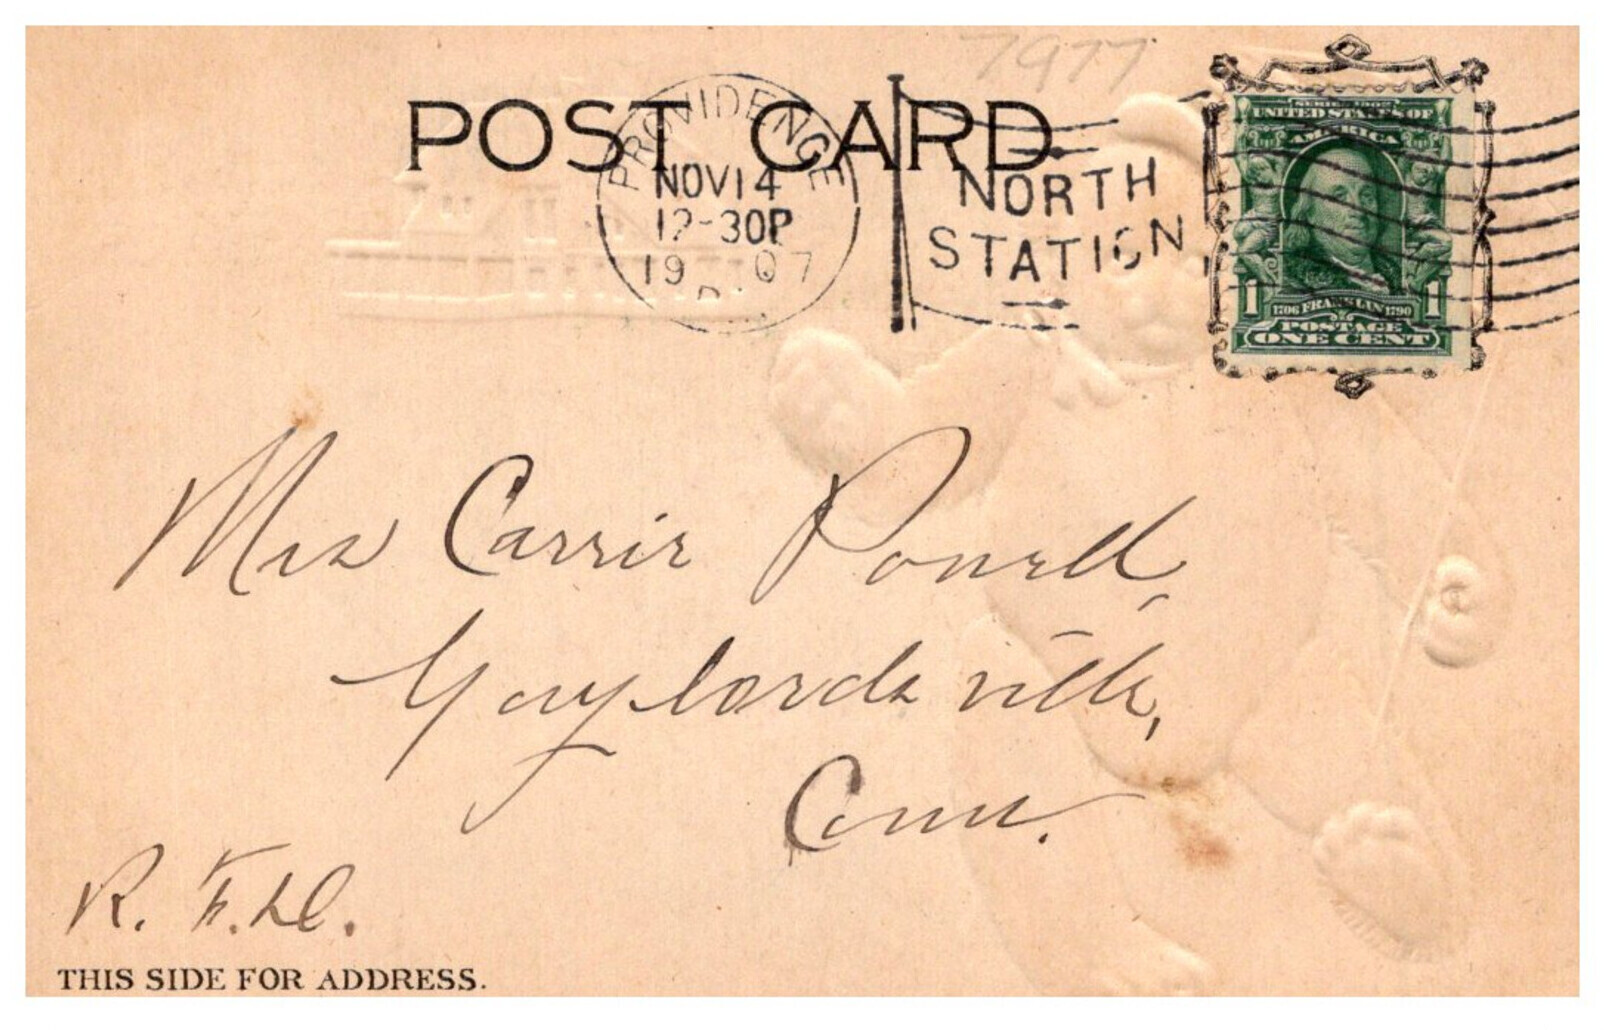 7977
POST CARD
PROVIDENCE
NOV 14
12-30P
1907
NORTH
STATION
SERIES 1902
UNITED STATES OF
AMERICA
1706 FRANKLIN 1790
1 1
POSTAGE
ONE CENT
Mrs Carrie Powell,
Gaylordsville,
Conn.
R. F. D.
THIS SIDE FOR ADDRESS.